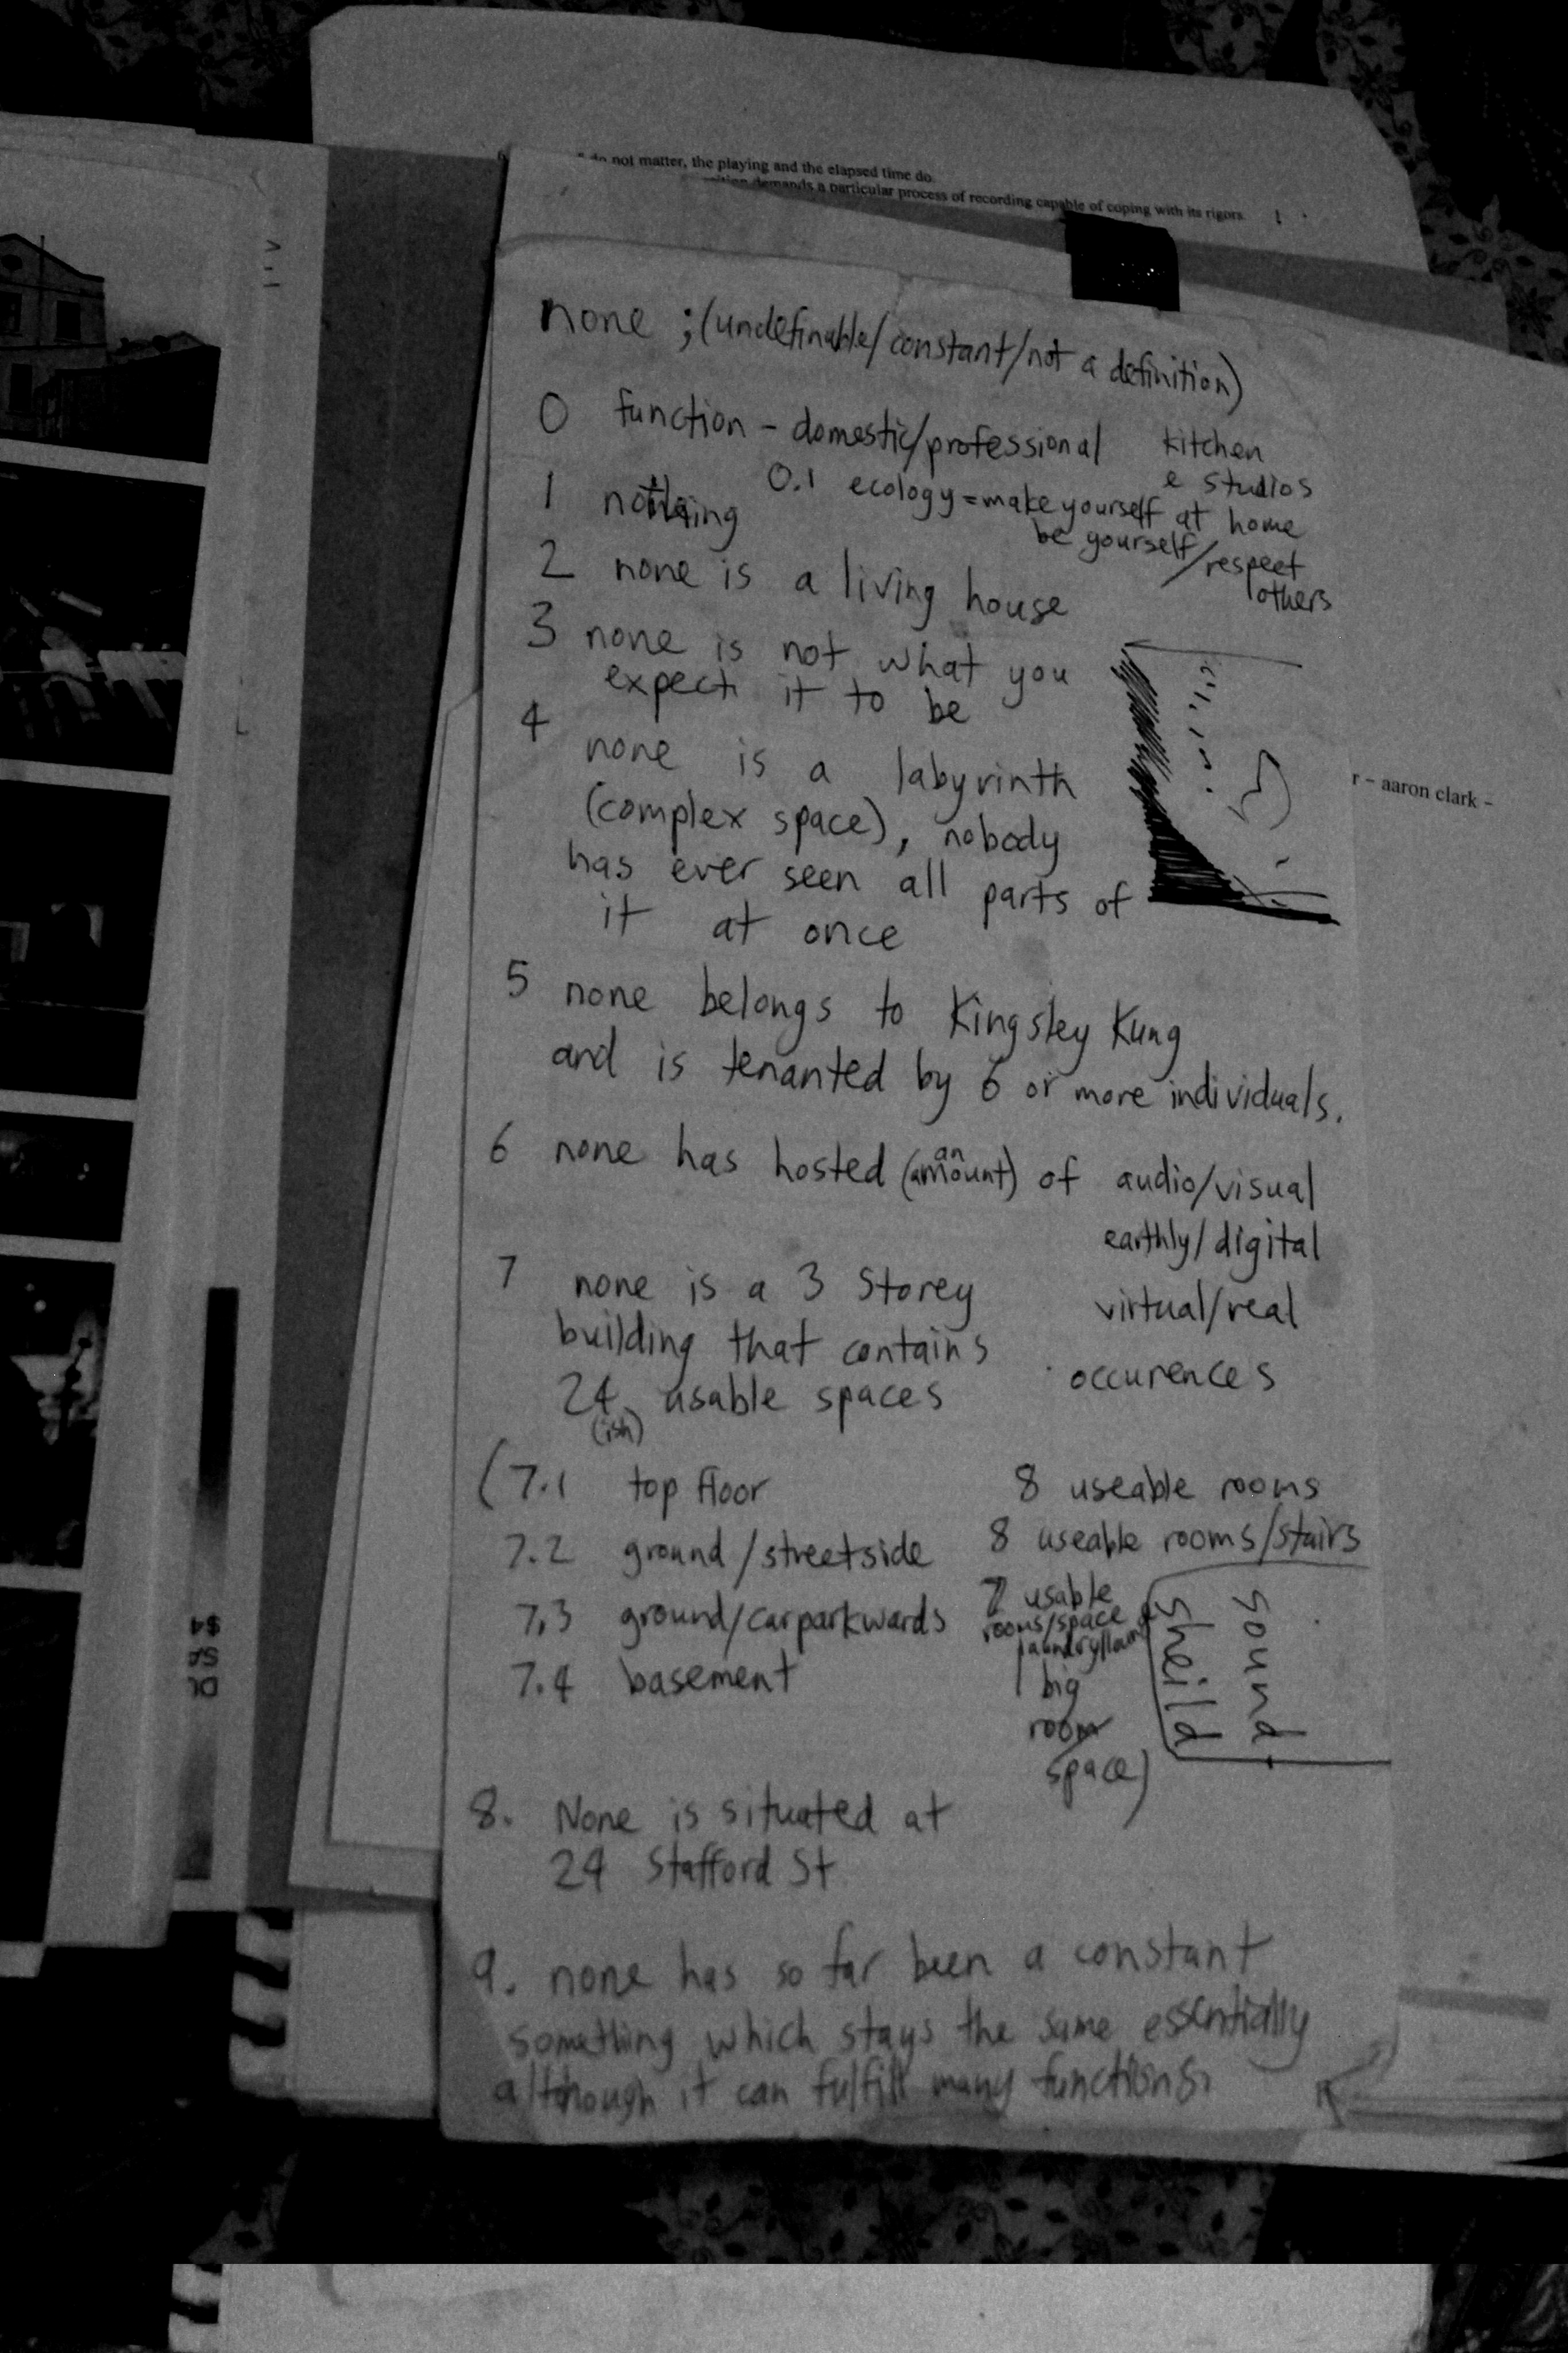 do not matter, the playing and the elapsed time do.
demands a particular process of recording capable of coping with its rigors.
none ; (undefinable/constant/not a definition)
0 function - domestic/professional kitchen
e studios
0.1 ecology = make yourself at home
be yourself/respect
others
1 nothing
2 none is a living house
3 none is not what you
expect it to be
4 none is a labyrinth
(complex space), nobody
has ever seen all parts of
it at once
r – aaron clark –
5 none belongs to Kingsley Kung
and is tenanted by 6 or more individuals.
6 none has hosted (an amount) of audio/visual
earthly/digital
virtual/real
occurences
7 none is a 3 Storey
building that contains
24 usable spaces
(ish)
(7.1 top floor 8 useable rooms
7.2 ground/streetside 8 useable rooms/stairs
7.3 ground/carparkwards 7 usable
rooms/space
7.4 basement 1 big
room
space)
sound
sheild
8. None is situated at
24 Stafford St
9. none has so far been a constant
something which stays the same essentially
although it can fulfill many functions.